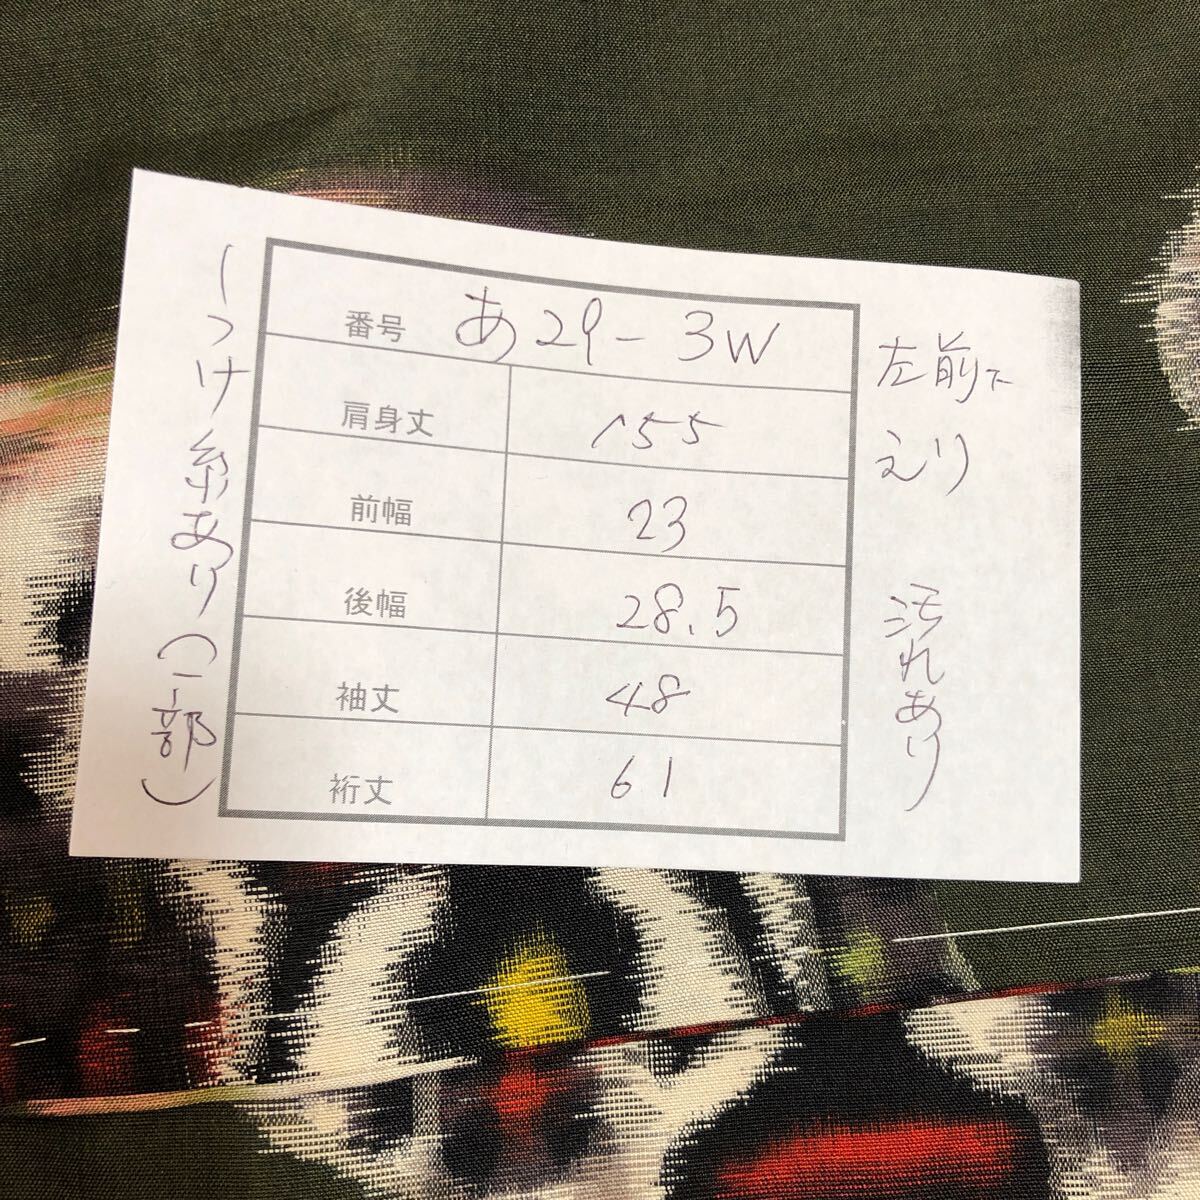 番号 あ29-3W
肩身丈 155
前幅 23
後幅 28.5
袖丈 48
裄丈 61
左前下
えり
汚れあり
しつけ糸あり(一部)